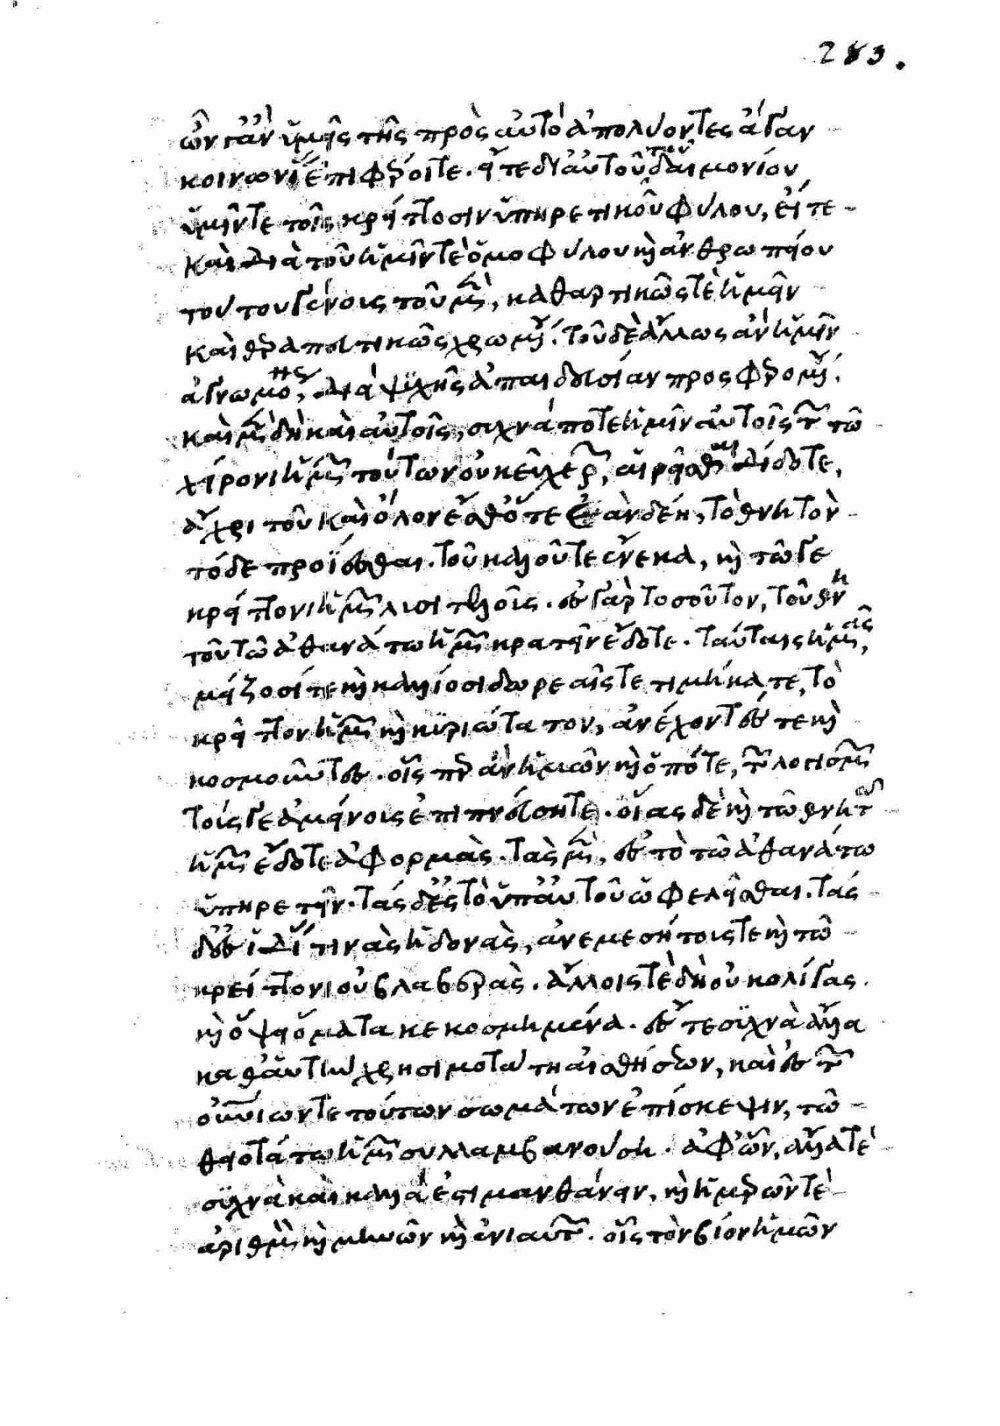 283.
ὧν ἐὰν ὑμεῖς τῆς πρὸς αὐτὸ ἀπολύοντες ἄγαν
κοινωνίας ἐπιφέροιτε. εἴτε δι' αὐτοῦ τοῦ δαιμονίου
ὑμῖν τε τοῖς κρείττοσιν ὑπηρετικοῦ φύλου, εἴτε
καὶ διὰ τοῦ ἡμῖν τε ὁμοφύλου καὶ ἀνθρωπείου
τούτου γένους τοῦ μὲν, καθαρτικῶς τε ἡμῖν
καὶ θεραπευτικῶς χρωμένου. τοῦ δὲ ἄλλως ἂν ἡμῖν
ἀγνωμόνως, διὰ ψυχῆς ἀπαιδευσίαν προσφερομένου.
καὶ μὲν δὴ καὶ αὐτοῖς, συχνά ποτε ἡμῖν αὐτοῖς τῶν τῷ
χείρονι ἡμῶν τούτων οὐκ εὐχερῶν, αἱρεῖσθαι δίδοτε,
ἄχρι τοῦ καὶ ὅλον ἔσθ' ὅτε ἐὰν δέῃ, τὸ θνητὸν
τόδε προΐεσθαι. τοῦ καλοῦ τε ἕνεκα, καὶ τῷ γε
κρείττονι ἡμῶν λυσιτελοῖς. ἐς γὰρ τοσοῦτον, τοῦ θνη
τοῦ τῷ ἀθανάτῳ ἡμῶν κρατεῖν ἔδοτε. ταύταις ἡμᾶς,
μείζοσί τε καὶ καλλίοσι δωρεαῖς τε τιμήκατε, τὸ
κρεῖττον ἡμῶν καὶ κυριώτατον, ἀνέχοντές τε καὶ
κοσμοῦντες. οἷς περ ἂν ἡμῶν καὶ ὁπότε, τῶν λογισμῶν
τοῖς γε ἀμείνοις ἐπιπνεύσητε. οἵας δὲ καὶ τῷ θνητῷ
ἡμῶν ἔδοτε ἀφορμὰς. τὰς μὲν, ἐς τὸ τῷ ἀθανάτῳ
ὑπηρετεῖν. τὰς δ' ἐς τὸ ὑπ' αὐτοῦ ὠφελεῖσθαι. τὰς
δὲ ἐς ἰδίᾳ τινὰς ἡδονὰς, ἀνεμεσήτους τε καὶ τῷ
κρείττονι οὐ βλαβερὰς. ἄλλοις τε δὴ οὐκ ὀλίγας.
καὶ ὄψει ὄμματα κεκοσμημένα. ἔς τε συχνὰ ἄλλα
καθ' αὑτὴν χρησιμωτάτη αἰσθήσεων, καὶ ἐς τῶν
οὐρανίων τε τούτων σωμάτων ἐπίσκεψιν, τῷ
θειοτάτῳ ἡμῶν συλλαμβανούσῃ. ἀφ' ὧν, ἄλλα τε
συχνὰ καὶ καλὰ ἔστι μανθάνειν, καὶ ἡμερῶν τε
ἀριθμὸν καὶ μηνῶν καὶ ἐνιαυτῶν. οἷς τὸν βίον ἡμῶν